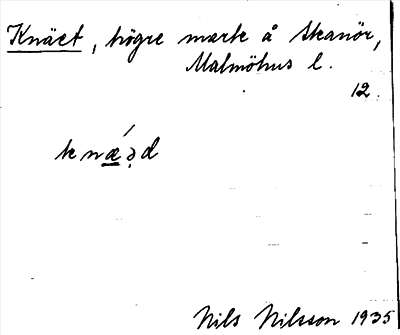 Knäet, högre mark å Skanör,
Malmöhus l.
12.
Nils Nilsson 1935